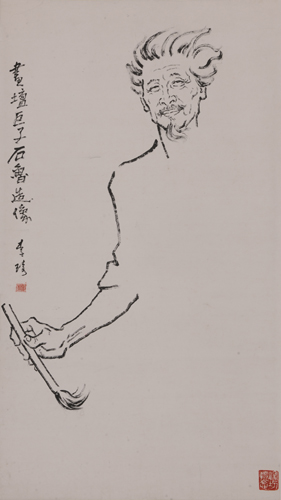 畫壇巨子石魯造像
李琦